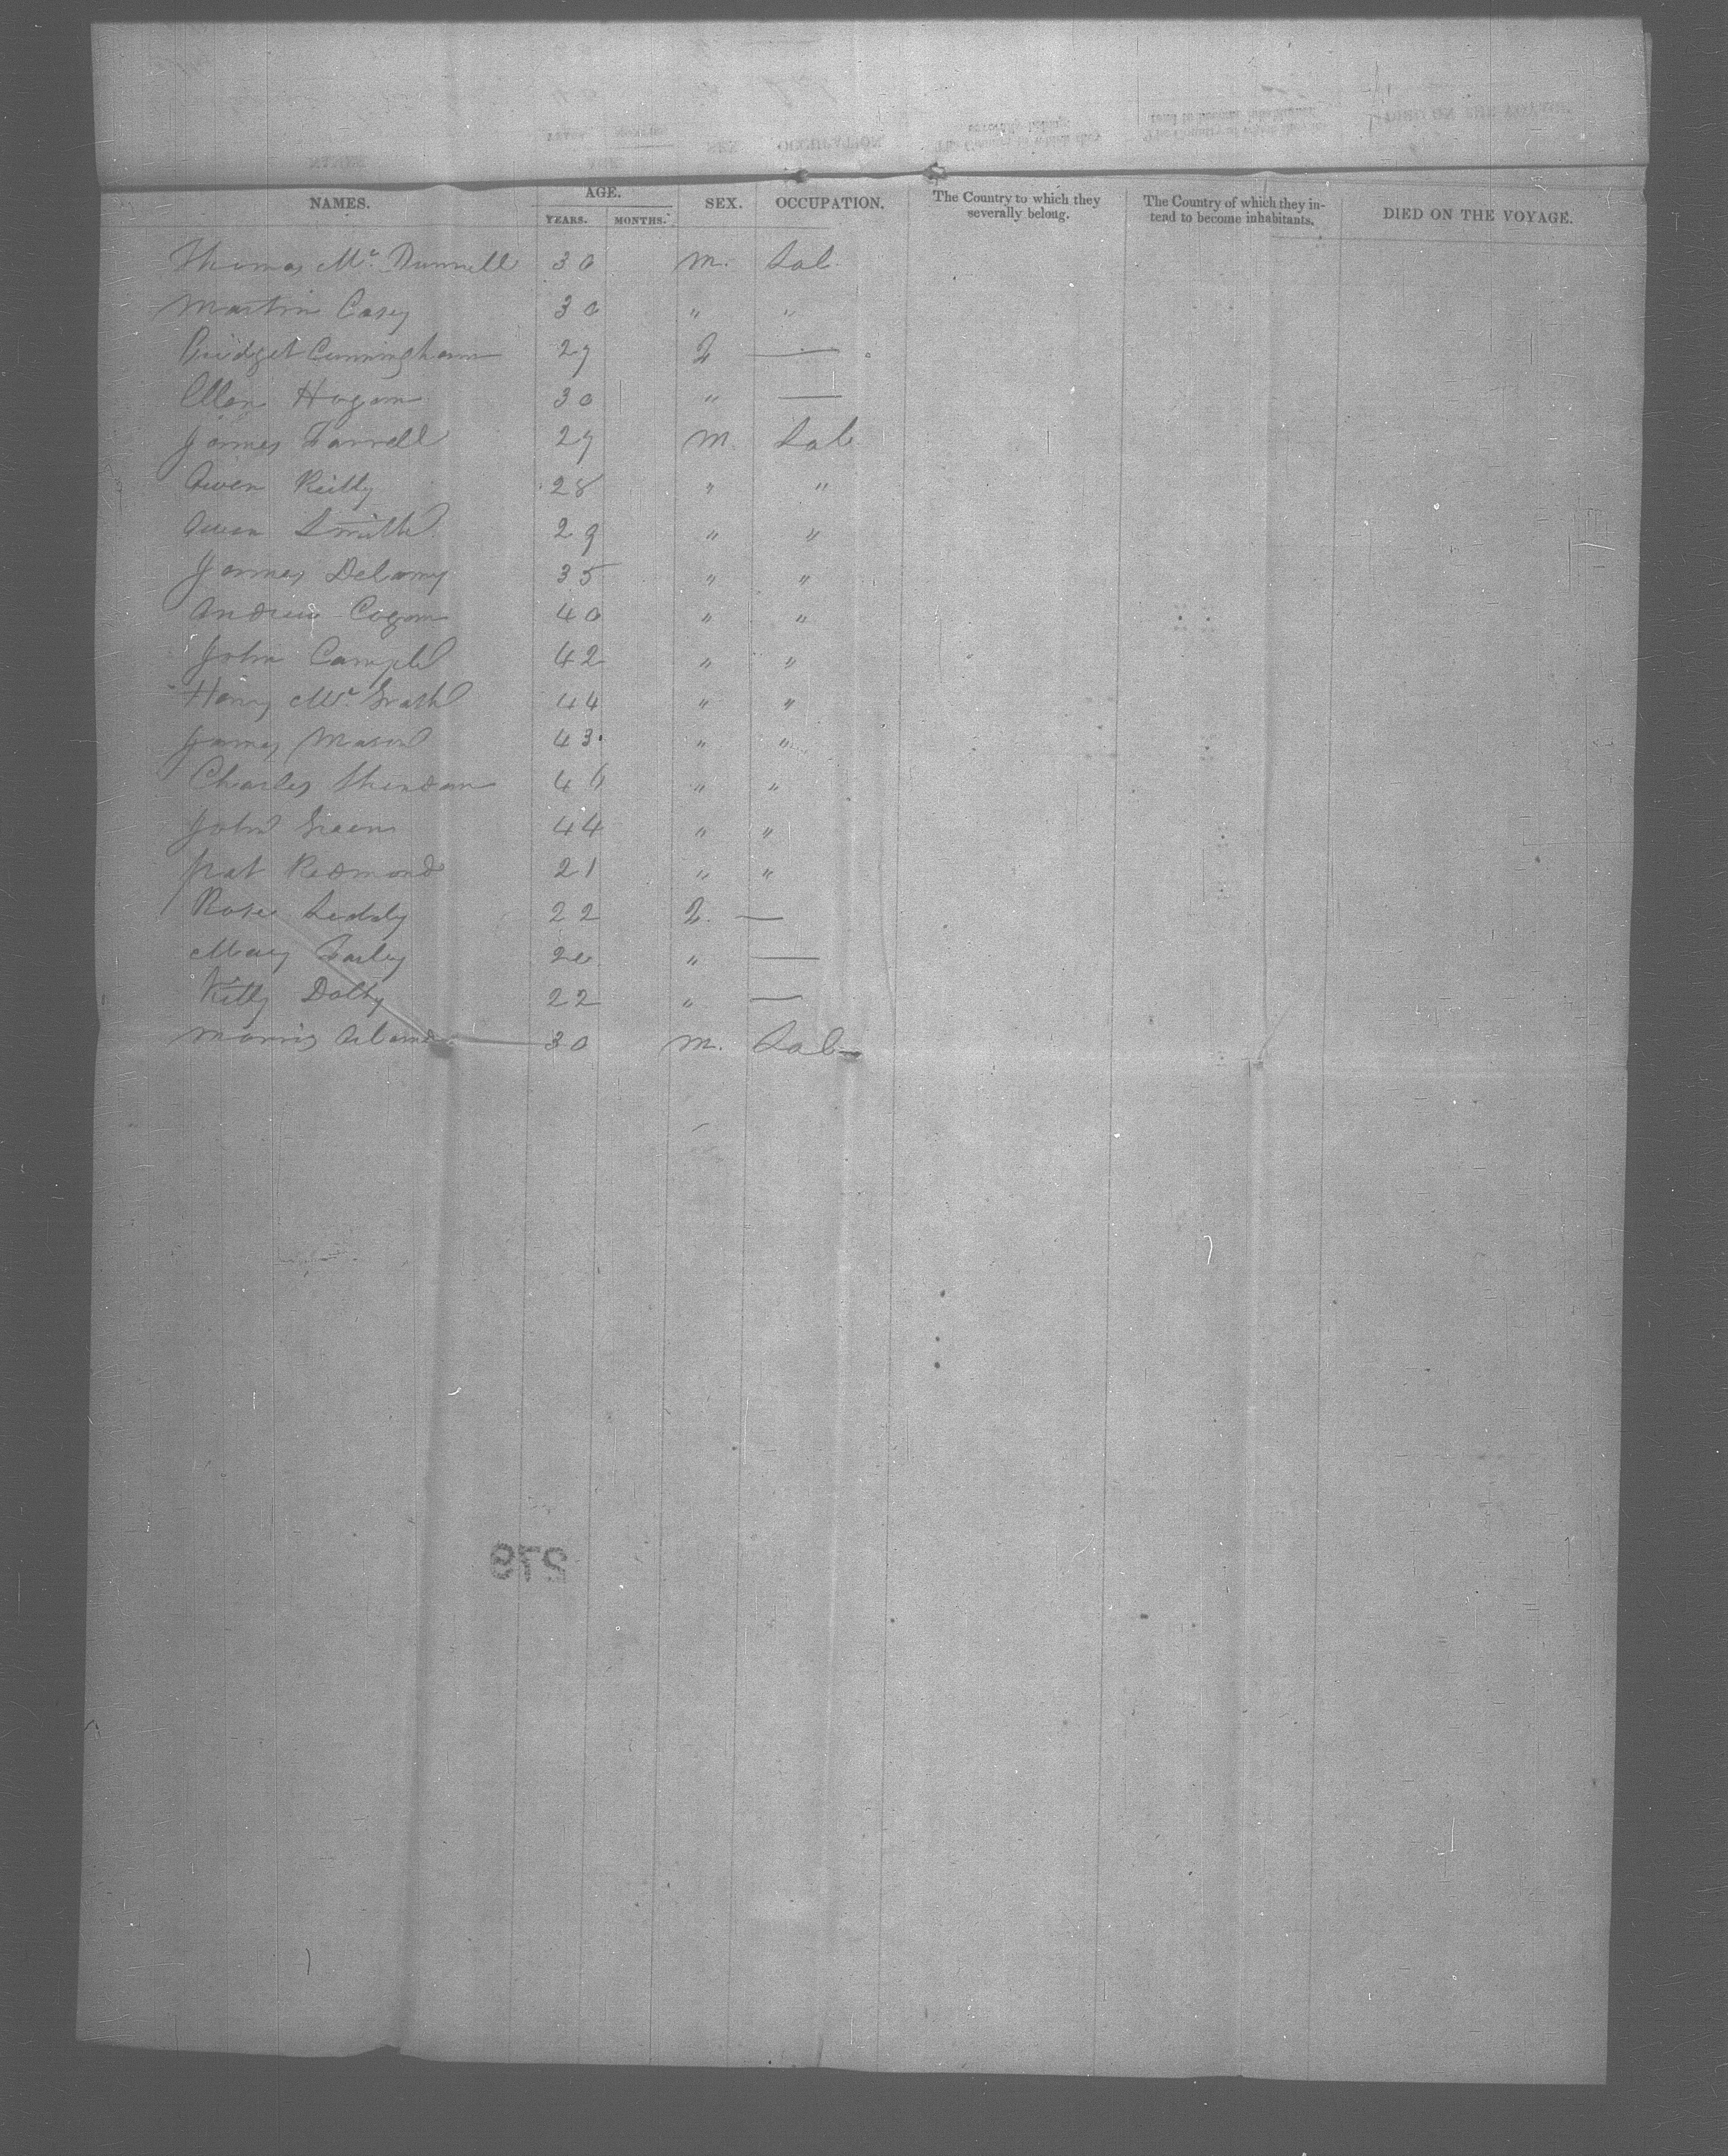 NAMES. AGE. YEARS. MONTHS. SEX. OCCUPATION. The Country to which they severally belong. The Country of which they intend to become inhabitants. DIED ON THE VOYAGE.
Thomas Mc Dunnell 30 M. Lab
Martin Casey 30 " "
Bridget Cunningham 29 F —
Ellen Hogan 30 " —
James Farrell 29 M. Lab
Owen Reilly 28 " "
Owen Smith 29 " "
James Delamy 35 " "
Andrew Cogan 40 " "
John Campbl 42 " "
Henry Mc Grath 44 " "
James Mason 43 " "
Charles Sheridan 46 " "
John Green 44 " "
Pat Redmond 21 " "
Rose Leddy 22 F —
Mary Farley 20 " —
Kitty Dolty 22 " —
Morris 30 M. Lab
276